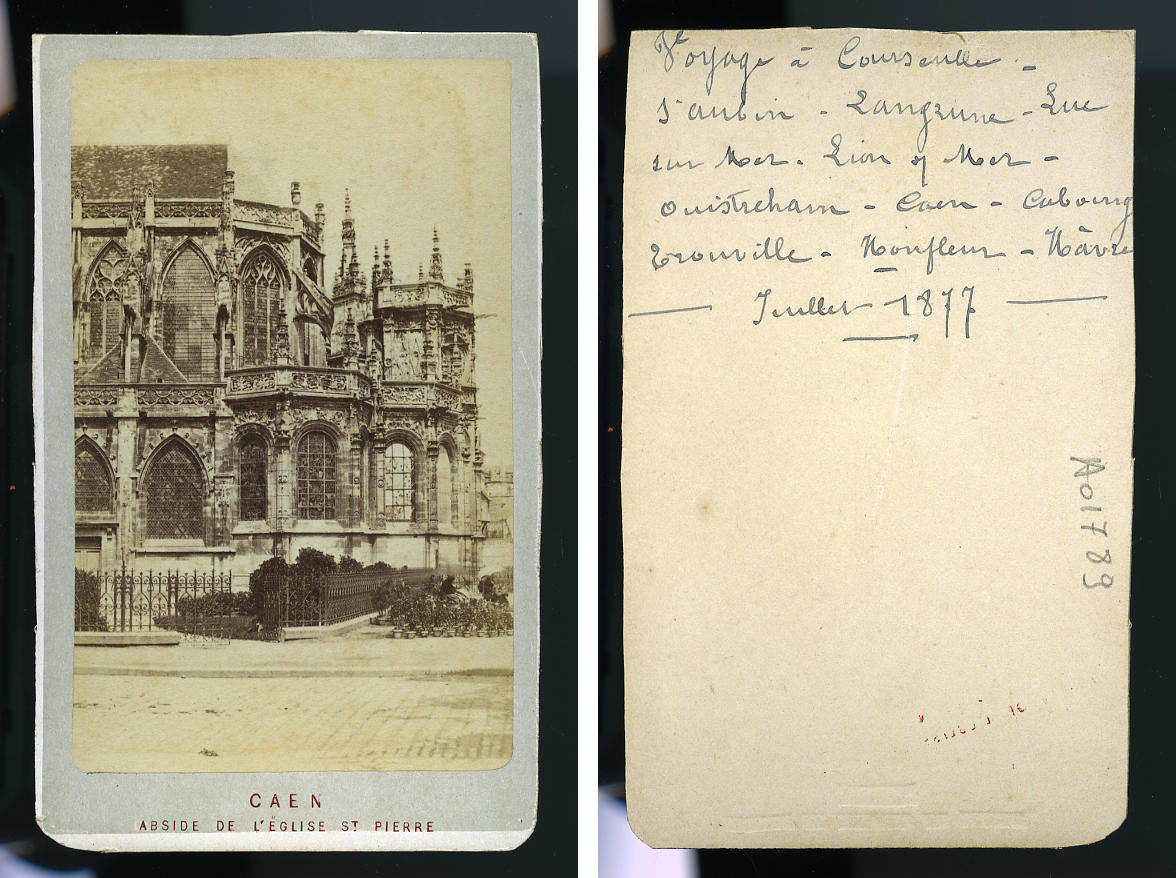 CAEN
ABSIDE DE L'ÉGLISE ST PIERRE
Voyage à Courseulle -
St aubin - Langrune - Luc
sur Mer. Lion s/ Mer -
Ouistreham - Caen - Cabourg
Trouville - Honfleur - Hâvre
Juillet 1877
A01789